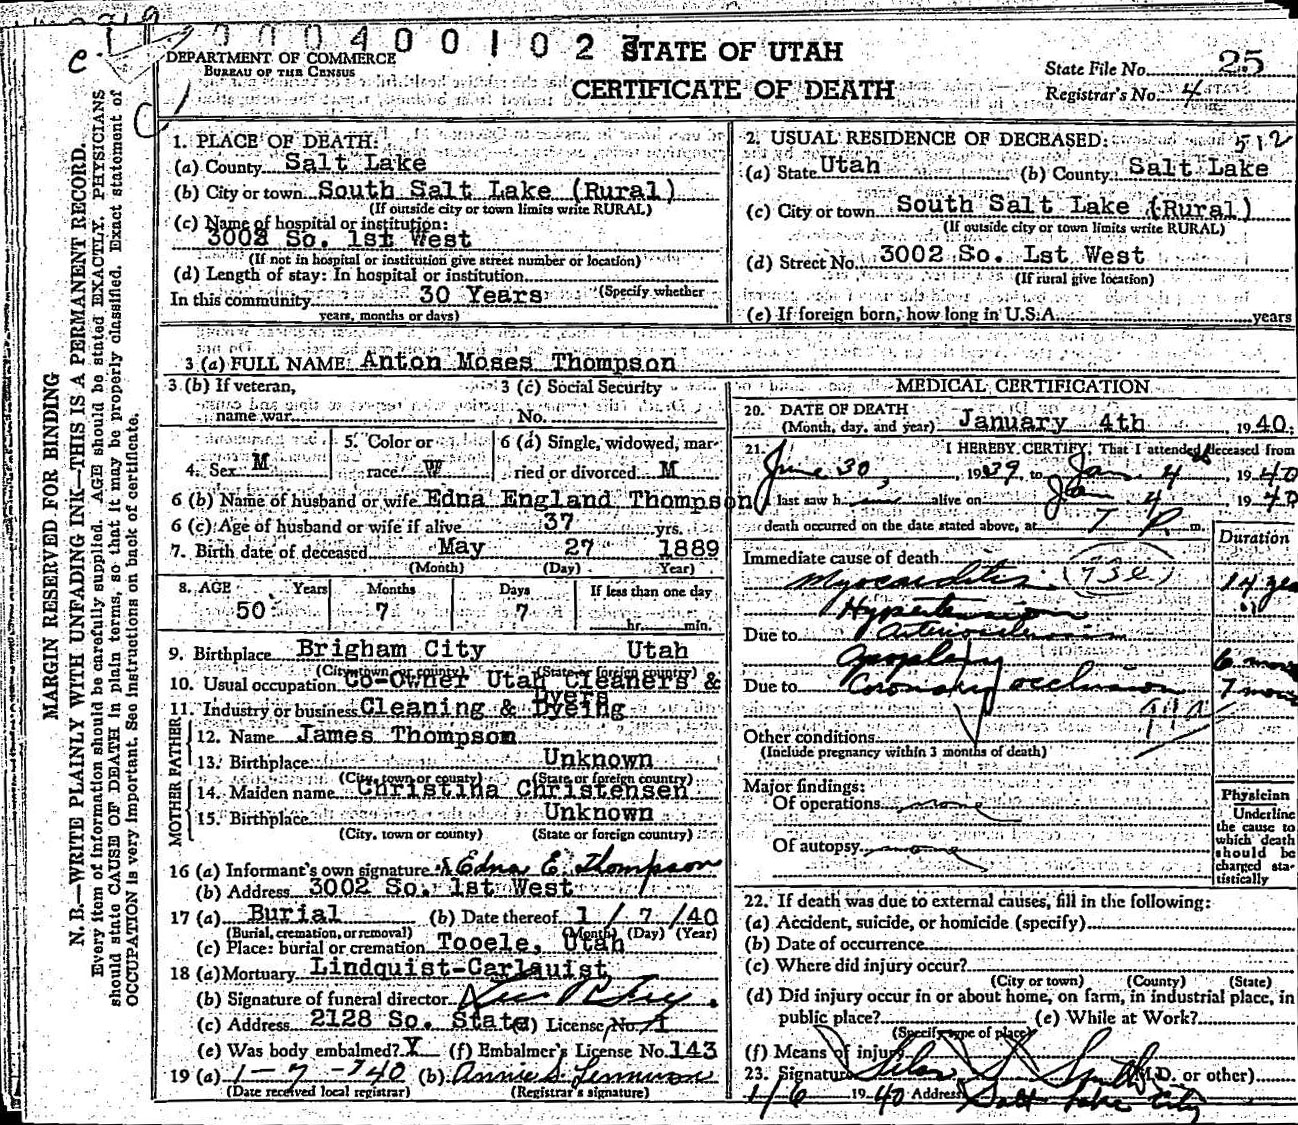 0 0 0 4 0 0 1 0 2
STATE OF UTAH
CERTIFICATE OF DEATH
DEPARTMENT OF COMMERCE
BUREAU OF THE CENSUS
State File No. 25
Registrar's No. 4
MARGIN RESERVED FOR BINDING
N. B.—WRITE PLAINLY WITH UNFADING INK—THIS IS A PERMANENT RECORD.
Every item of information should be carefully supplied. AGE should be stated EXACTLY. PHYSICIANS
should state CAUSE OF DEATH in plain terms, so that it may be properly classified. Exact statement of
OCCUPATION is very important. See instructions on back of certificate.
1. PLACE OF DEATH:
(a) County Salt Lake
(b) City or town South Salt Lake (Rural)
(If outside city or town limits write RURAL)
(c) Name of hospital or institution:
3002 So. 1st West
(If not in hospital or institution give street number or location)
(d) Length of stay: In hospital or institution
(Specify whether
In this community 30 Years
years, months or days)
2. USUAL RESIDENCE OF DECEASED: 512
(a) State Utah (b) County Salt Lake
(c) City or town South Salt Lake (Rural)
(If outside city or town limits write RURAL)
(d) Street No. 3002 So. 1st West
(If rural give location)
(e) If foreign born, how long in U.S.A. years
3 (a) FULL NAME Anton Moses Thompson
3 (b) If veteran,
name war
3 (c) Social Security
No.
4. Sex M
5. Color or
race W
6 (a) Single, widowed, mar-
ried or divorced M
6 (b) Name of husband or wife Edna England Thompson
6 (c) Age of husband or wife if alive 37 yrs.
7. Birth date of deceased May 27 1889
(Month) (Day) Year)
8. AGE Years Months Days If less than one day
50 7 7 hr. min.
9. Birthplace Brigham City Utah
(City, town or county) (State or foreign country)
10. Usual occupation Co-Owner Utah Cleaners &
Dyers
11. Industry or business Cleaning & Dyeing
FATHER
12. Name James Thompson
13. Birthplace Unknown
(City, town or county) (State or foreign country)
MOTHER
14. Maiden name Christina Christensen
15. Birthplace Unknown
(City, town or county) (State or foreign country)
16 (a) Informant's own signature Edna E. Thompson
(b) Address 3002 So. 1st West
17 (a) Burial (b) Date thereof 1 / 7 /40
(Burial, cremation, or removal) (Month) (Day) (Year)
(c) Place: burial or cremation Tooele, Utah
18 (a) Mortuary Lindquist-Carlquist
(b) Signature of funeral director
(c) Address 2128 So. State (d) License No. 71
(e) Was body embalmed? X (f) Embalmer's License No. 143
19 (a) 1-7-40 (b) Annie S.
(Date received local registrar) (Registrar's signature)
MEDICAL CERTIFICATION
20. DATE OF DEATH
(Month, day, and year) January 4th, 1940.
21. I HEREBY CERTIFY That I attended deceased from
June 30, 1939, to Jan. 4, 1940
I last saw h im alive on Jan 4, 1940
death occurred on the date stated above, at 7 P m.
Duration
Immediate cause of death
Myocarditis (93c) 14 yrs
Hypertension "
Due to Arteriosclerosis
Apoplexy 6 mos
Due to Coronary occlusion 7 mos
Other conditions
(Include pregnancy within 3 months of death)
Major findings:
Of operations none
Of autopsy none
Physician
Underline
the cause to
which death
should be
charged sta-
tistically
22. If death was due to external causes, fill in the following:
(a) Accident, suicide, or homicide (specify)
(b) Date of occurrence
(c) Where did injury occur?
(City or town) (County) (State)
(d) Did injury occur in or about home, on farm, in industrial place, in
public place? (e) While at Work?
(Specify type of place)
(f) Means of injury
23. Signature Silas S. Smith (M.D. or other)
1/6 1940 Address Salt Lake City